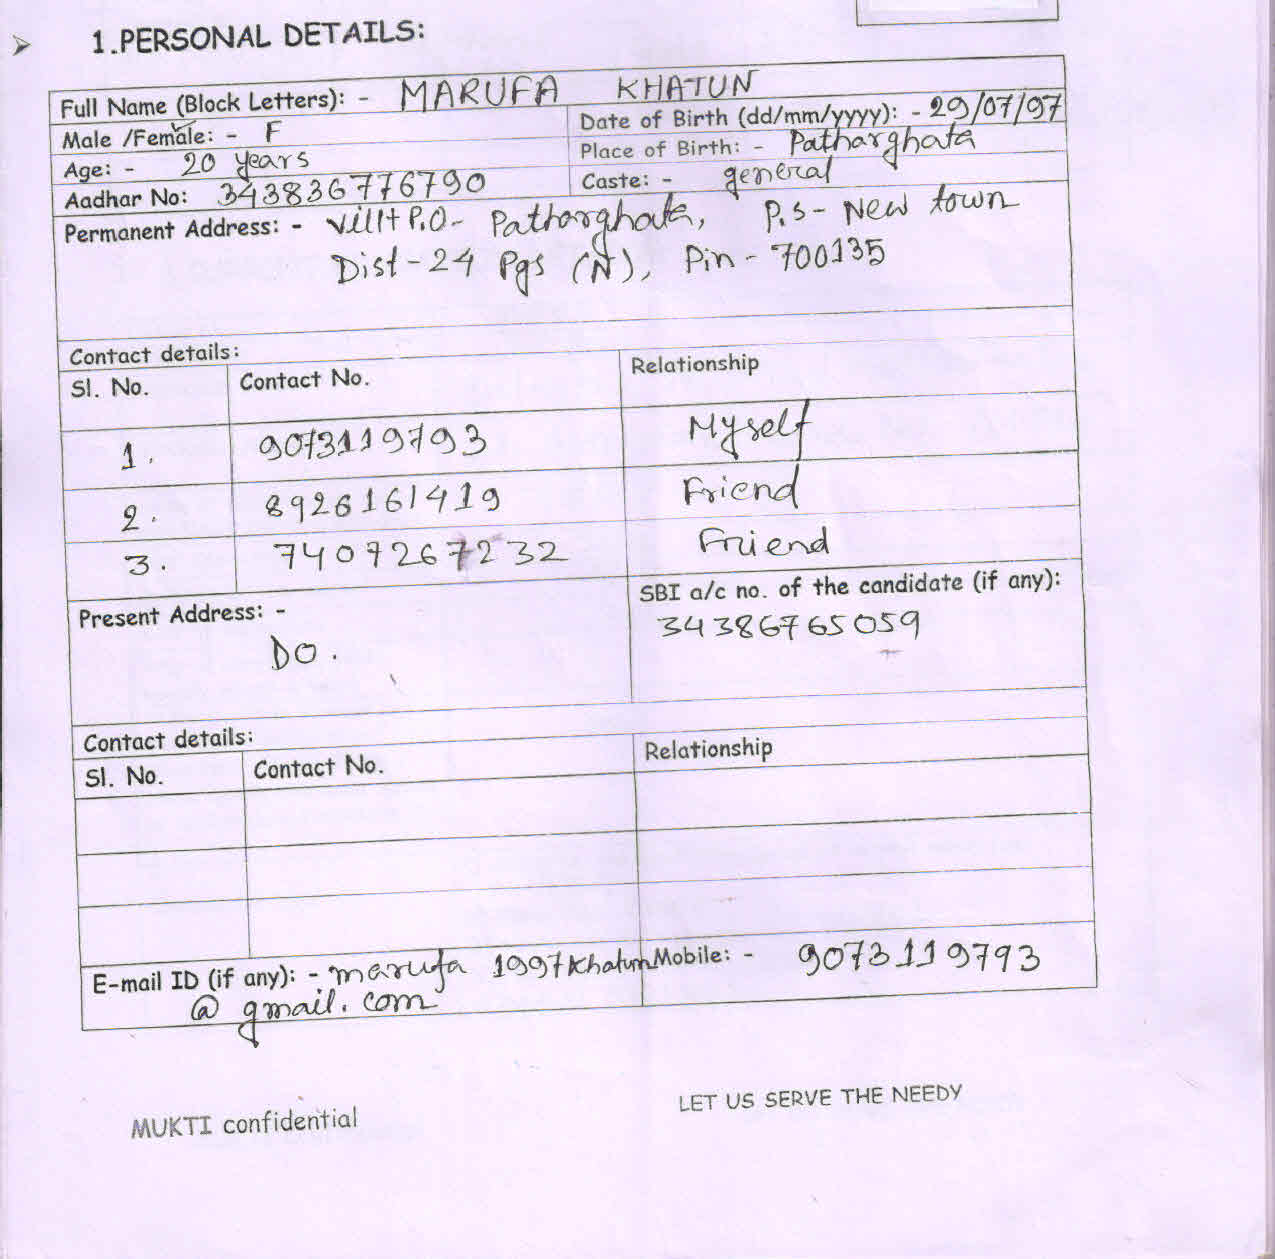 1.PERSONAL DETAILS:
Full Name (Block Letters): - MARUFA KHATUN
Male /Female: - F
Date of Birth (dd/mm/yyyy): - 29/07/97
Age: - 20 years
Place of Birth: - Patharghata
Aadhar No: 343836776790
Caste: - general
Permanent Address: - Vill+P.O- Patharghata, P.S- New town
Dist-24 Pgs (N), Pin-700135
Contact details:
Sl. No. Contact No. Relationship
1. 9073119793 Myself
2. 8926161419 Friend
3. 7407267232 Friend
Present Address: -
SBI a/c no. of the candidate (if any):
34386765059
DO.
Contact details:
Sl. No. Contact No. Relationship
E-mail ID (if any): - marufa 1997khatun
Mobile: - 9073119793
@ gmail.com
MUKTI confidential
LET US SERVE THE NEEDY